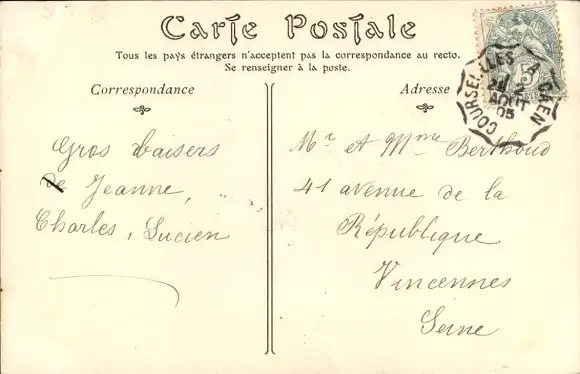 Carte Postale
Tous les pays étrangers n'acceptent pas la correspondance au recto.
Se renseigner à la poste.
Correspondance
Adresse
Gros baisers
de Jeanne,
Charles, Lucien
Mr et Mme Berthoud
41 avenue de la
République
Vincennes
Seine
COURSEULLES
CAEN
AOUT
05
5